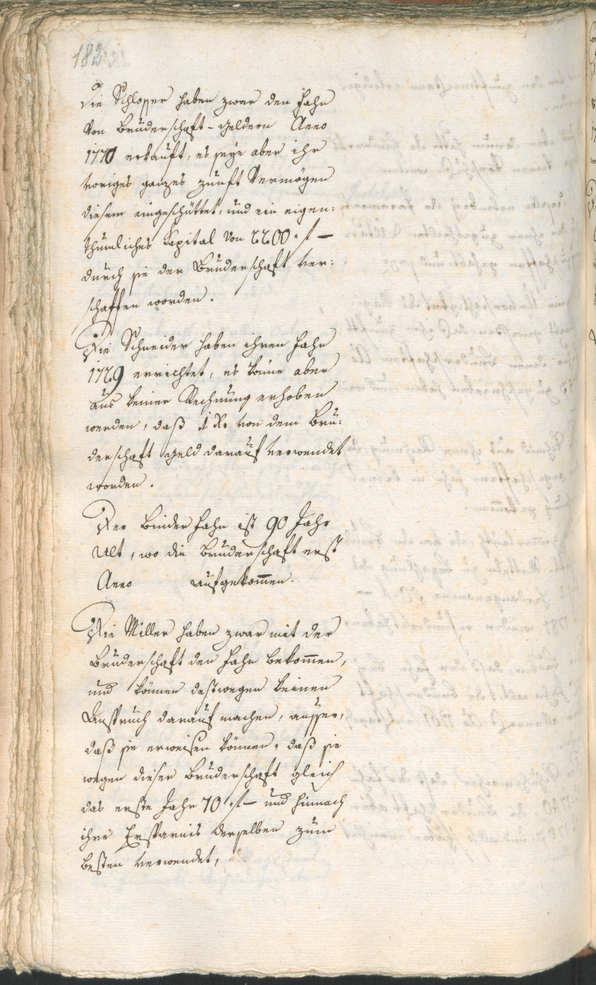 182
Die Schlosser haben zwar den Fahn
von Bruderschaft-Geldern Anno
1770 erkauft, es seye aber ihr
voriges ganzes Zunft Vermögen
diesem eingeschüttet, und ein eigen:
thümliches Kapital von 2200 f —
durch sie der Bruderschaft ver:
schaffen worden.
Die Schneider haben ihren Fahn
1729 errichtet, es könne aber
aus keiner Rechnung erhoben
werden, daß 1 Xr von dem Bru:
derschaft Geld darauf verwendet
worden.
Der Binder Fahn ist 90 Jahr
alt, wo die Bruderschaft erst
Anno aufgekommen.
Die Miller haben zwar mit der
Bruderschaft den Fahn bekommen,
und können destwegen keinen
Anspruch darauf machen, ausser,
daß sie erweisen können, daß sie
wegen dieser Bruderschaft gleich
das erste Jahr 70 f — und hinnach
ihre Ersparnis derselben zum
besten verwendet,